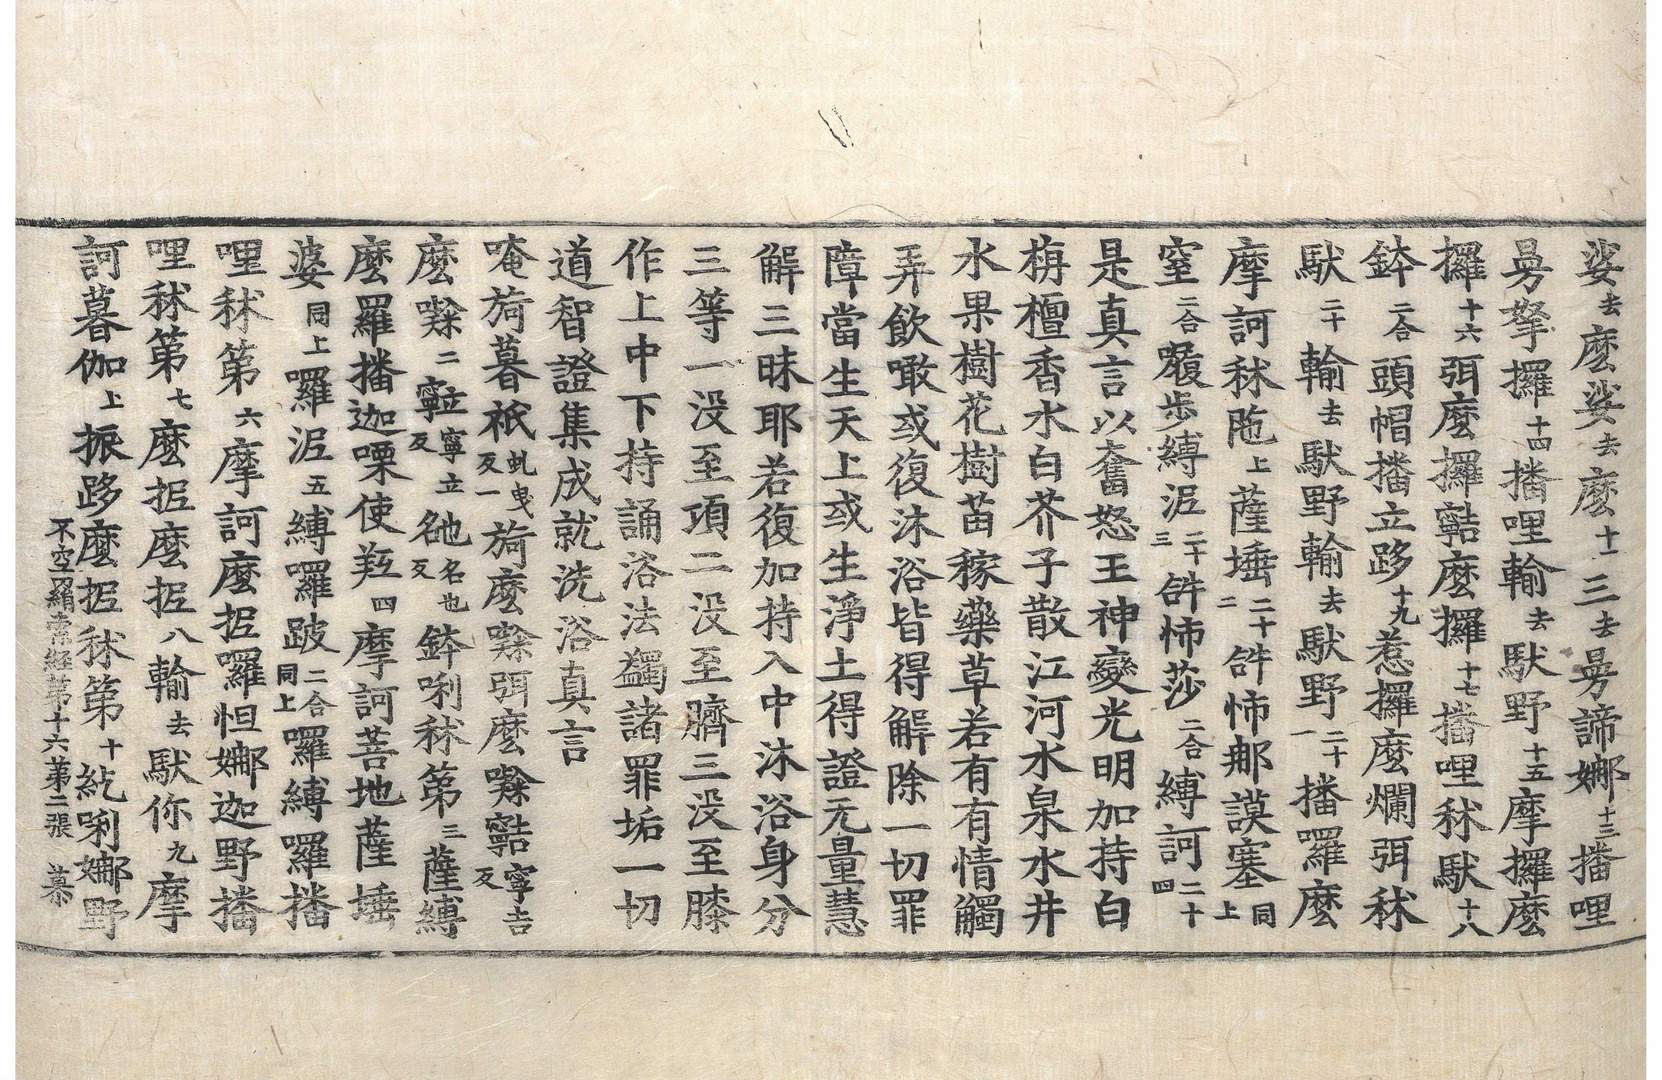 娑去麼娑去麼十二去曼諦娜十三播哩
曼拏攞十四播哩輸去馱野十五摩攞麼
攞十六弭麼攞䩭麼攞十七播哩秫馱十八
鉢二合頭帽播立跢十九惹攞麼爛弭秫
馱二十輸去馱野輸去馱野二十一播囉麼
摩訶秫陁上薩埵二十二䛐怖那謨塞同上
窒二合囇步縛涊二十三䛐怖莎二合縛訶二十四
是真言以奮怒王神變光明加持白
栴檀香水白芥子散江河水泉水井
水果樹花樹苗稼藥草若有有情觸
弄飲噉或復沐浴皆得解除一切罪
障當生天上或生淨土得證无量慧
解三昧耶若復加持入中沐浴身分
三等一没至項二没至臍三没至膝
作上中下持誦浴法蠲諸罪垢一切
道智證集成就洗浴真言
唵旖暮祇虬曳反一旖麼㘑弭麼㘑䩭寧吉反
麼㘑二𩐳寧立反㐌名也反鉢唎秫第三薩縛
麼羅播迦㗚使䍧四摩訶菩地薩埵
婆同上囉涊五縛囉跛二合同上囉縛囉播
哩秫第六摩訶麼抳囉怛娜迦野播
哩秫第七麼抳麼抳八輸去馱你九摩
訶暮伽上振跢麼抳秫第十紇唎娜野
不空羂索經第十六第二張 慕